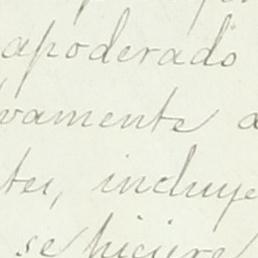 apoderado
vamente a
tes, incluye
se hiciere